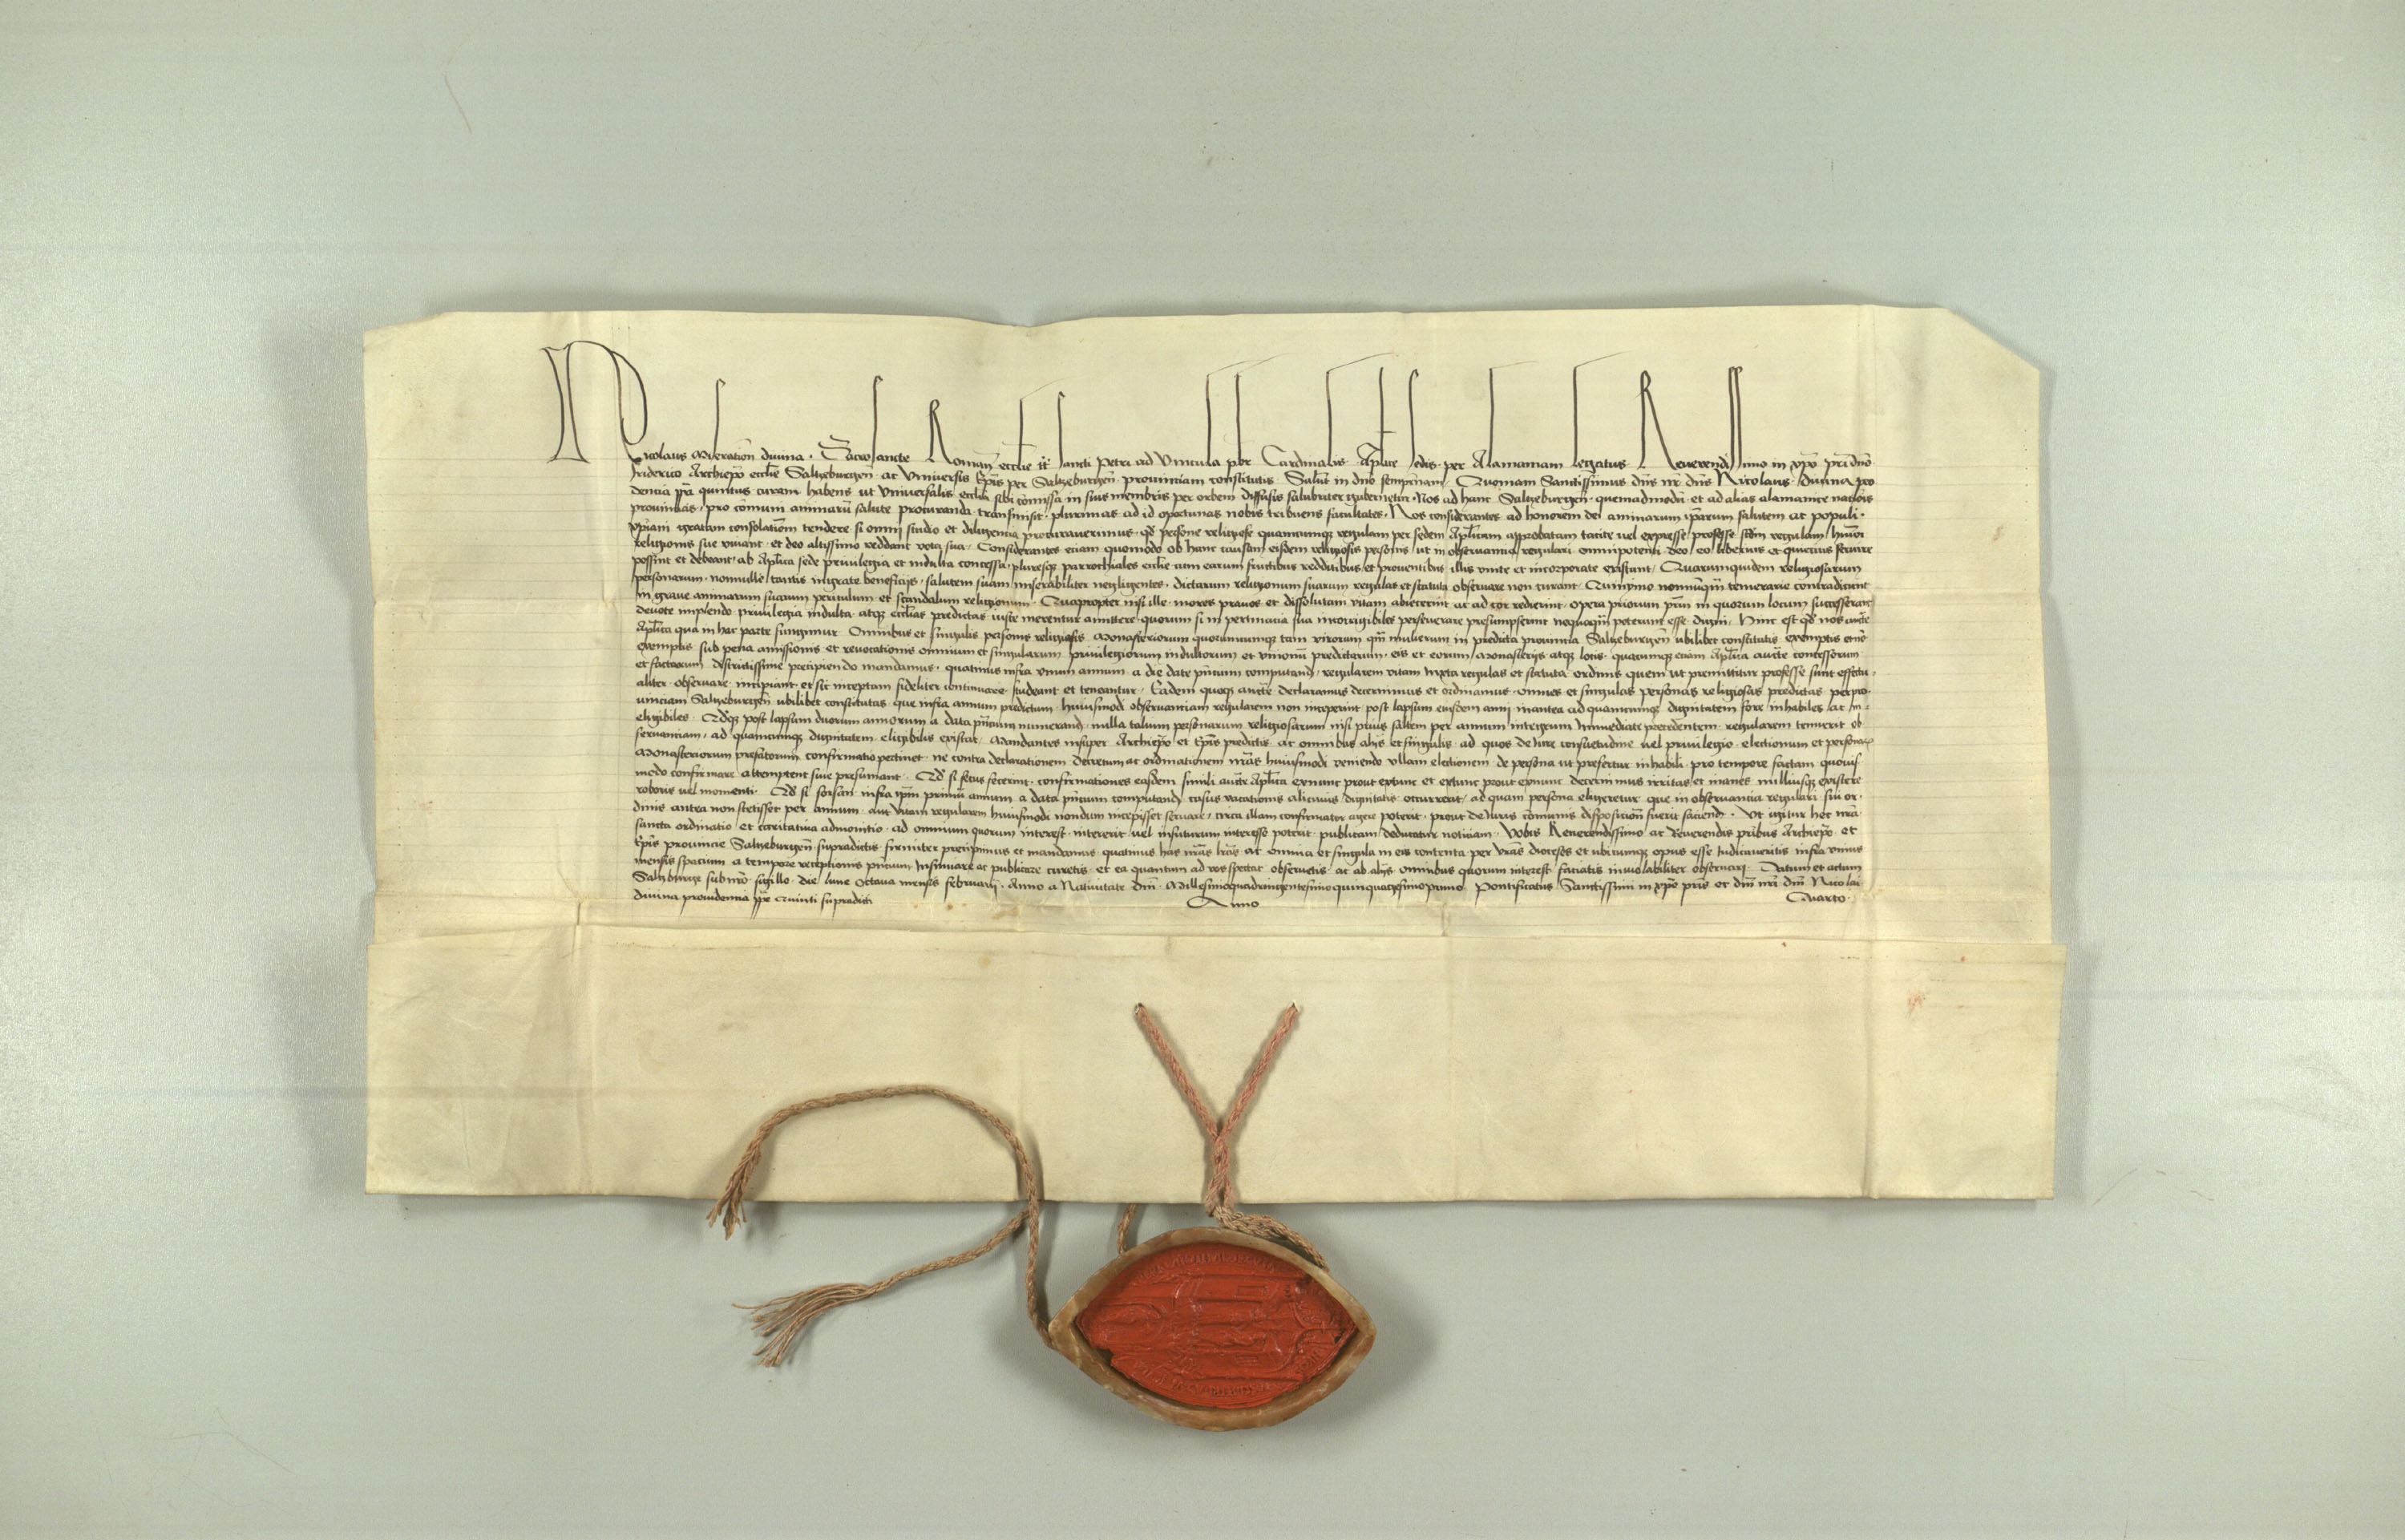 Nicolaus miseration̄ divina · Sacrosancte Roman̄ ecclie tt̄ sancti Petri ad Vincula pbr Cardinalis Aplice sedis per Alamaniam legatus Reverendissimo in xpō prī dnō
friderico Archiepō ecclie Saltzeburgen̄ · ac Universis Ep̄is per Saltzeburgen̄ provinciam constitutis Salut̄ in dnō sempiternam Quoniam Sanctissimus dn̄s nr̄ dn̄s Nicolaus divina pro
dencia pp̄a quintus curam habens ut Universalis ecclia sibi com̄issa in suis membris per orbem diffusis salubriter gubernetur · Nos ad hanc Saltzeburgen̄ · quemadmodū · et ad alias alamanice nat̄ois
provincias · pro com̄uni animarū salute procuranda transmisit · plurimas ad id oportunas nobis tribuens facultates · Nos considerantes ad honorem dei animarum ip̄arum salutem ac populi ·
xp̄iani gratam consolatiōm tendere si omni studio et diligencia procuraverimus · qd̄ persone religiose quamcumqz regulam per sedem Aplicam approbatam tacite vel expresse professe scdm̄ regulam hm̄oi
religionis sue vivant · et deo altissimo reddant vota sua · Considerantes etiam quomodo ob hanc causam eisdem religiosis personis · ut in observantia regulari omnipotenti deo eo liberius et quietius servire
possint et debeant · ab Aplica sede privilegia et indulta concessa · pluresqz parrochiales ecclie cum earum fructibus redditibus et proventibus illis unite et incorporate existunt · Quarumquidem religiosarum
personarum · nonnulle tantis ingrate beneficijs · salutem suam miserabiliter negligentes · dictarum religionum suarum regulas et statuta observare non curant · Quinymo nonnuqm̄ temerarie contradicunt
in grave animarum suarum periculum et scandalum religionum · Quapropter nisi ille · mores pravos et dissolutam vitam abiecerint ac ad cor redierint · opera priorum prm̄ in quorum locum successerunt
devote implendo privilegia indulta · atqz ecclias predictas · iuste merentur amittere · quorum si in pertinacia sua incorrigibiles perseverare presumpserint nequaqm̄ poterunt esse digni · Hinc est qd̄ nos aucte
Aplica qua in hac parte fungimur Omnibus et singulis personis religiosis monasteriorum quorumcumqz tam virorum qm̄ mulierum in predicta provincia Saltzeburgen̄ ubilibet constitutis exemptis et nō
exemptis sub pena amissionis et revocationis omnium et singularum privilegiorum indultorum et unionū predictarum · eis et eorum monasterijs atqz locis · quacumqz etiam Aplica aucte concessorum
et factarum districtissime precipiendo mandamus · quatinus infra unum annum · a die date pn̄cium computand̄ · regularem vitam iuxta regulas et statuta ordinis quem ut premittitur professe sunt effectu ·
aliter · observare incipiant et sic inceptam fideliter continuare studeant et teneantur · Eadem quoqz aucte declaramus decernimus et ordinamus · omnes et singulas personas religiosas predictas per pro ·
vinciam Saltzeburgen̄ ubilibet constitutas · que infra annum predictum · huiusmodi observanciam regularem non inceperint post lapsum eiusdem anni inantea ad quamcumqz dignitatem fore inhabiles ac in =
eligibiles · Qdqz post lapsum duorum annorum a data pn̄cium numerand̄ · nulla talium personarum religiosarum nisi prius saltem per annum integrum immediate precedentem · regularem tenuerit ob
servantiam · ad quamcumqz dignitatem eligibilis existat · Mandantes insuper Archiepō et Ep̄is predictis ac omnibus alijs et singulis · ad quos de iure consuetudine vel privilegio · electionum et personar̄
Monasteriorum prefatorum confirmatio pertinet · ne contra declarationem decretum ac ordinationem nr̄as huiusmodi veniendo ullam electionem · de persona ut prefertur inhabili · pro tempore factam quovis
modo confirmare attemptent sive presumant · Qd̄ si secus fecerint · confirmationes easdem simili aucte Aplica exnunc prout extunc et extunc prout exnunc decernimus irritas et inanes nulliusqz existere
roboris vel momenti · Qd̄ si forsan infra ip̄m primū annum a data pn̄cium computand̄ casus vacationis alicuius dignitatis occurrerit · ad quam persona eligeretur que in observancia regulari sui or ·
dinis antea non stetisset per annum · aut vitam regularem huiusmodi nondum incepisset servare · circa illam confirmator agere poterit · prout de iuris com̄unis disposicion̄ fuerit faciend̄ · Ut igitur hec nr̄a
sancta ordinatio et caritativa admonitio · ad omnium quorum interest · intererit vel infuturum interesse poterit publicam deducatur noticiam · Vobis Reverendissimo ac Reverendis pr̄ibus Archiepō et
Ep̄is provincie Saltzeburgen̄ supradictis firmiter precipimus et mandamus · quatinus has nr̄as lr̄as ac omnia et singula in eis contenta per vr̄as dioceses et ubicumqz opus esse iudicaveritis infra unius
mensis spacium a tempore receptionis pn̄cium insinuare ac publicare curetis · et ea quantum ad vos spectat observetis ac ab alijs omnibus quorum interest faciatis inviolabiliter observari · Datum et actum
Saltzburge sub nrō · sigillo · die lune Octava mensis februarij · Anno a Nativitate dm̄ · Millesimoquadringentesimoquinquagesimoprimo Pontificatus Sanctissimi in xpō pr̄is et dm̄ nr̄i dm̄ Nicolai
divina providencia pp̄e Quinti supradicti Anno Quarto ·